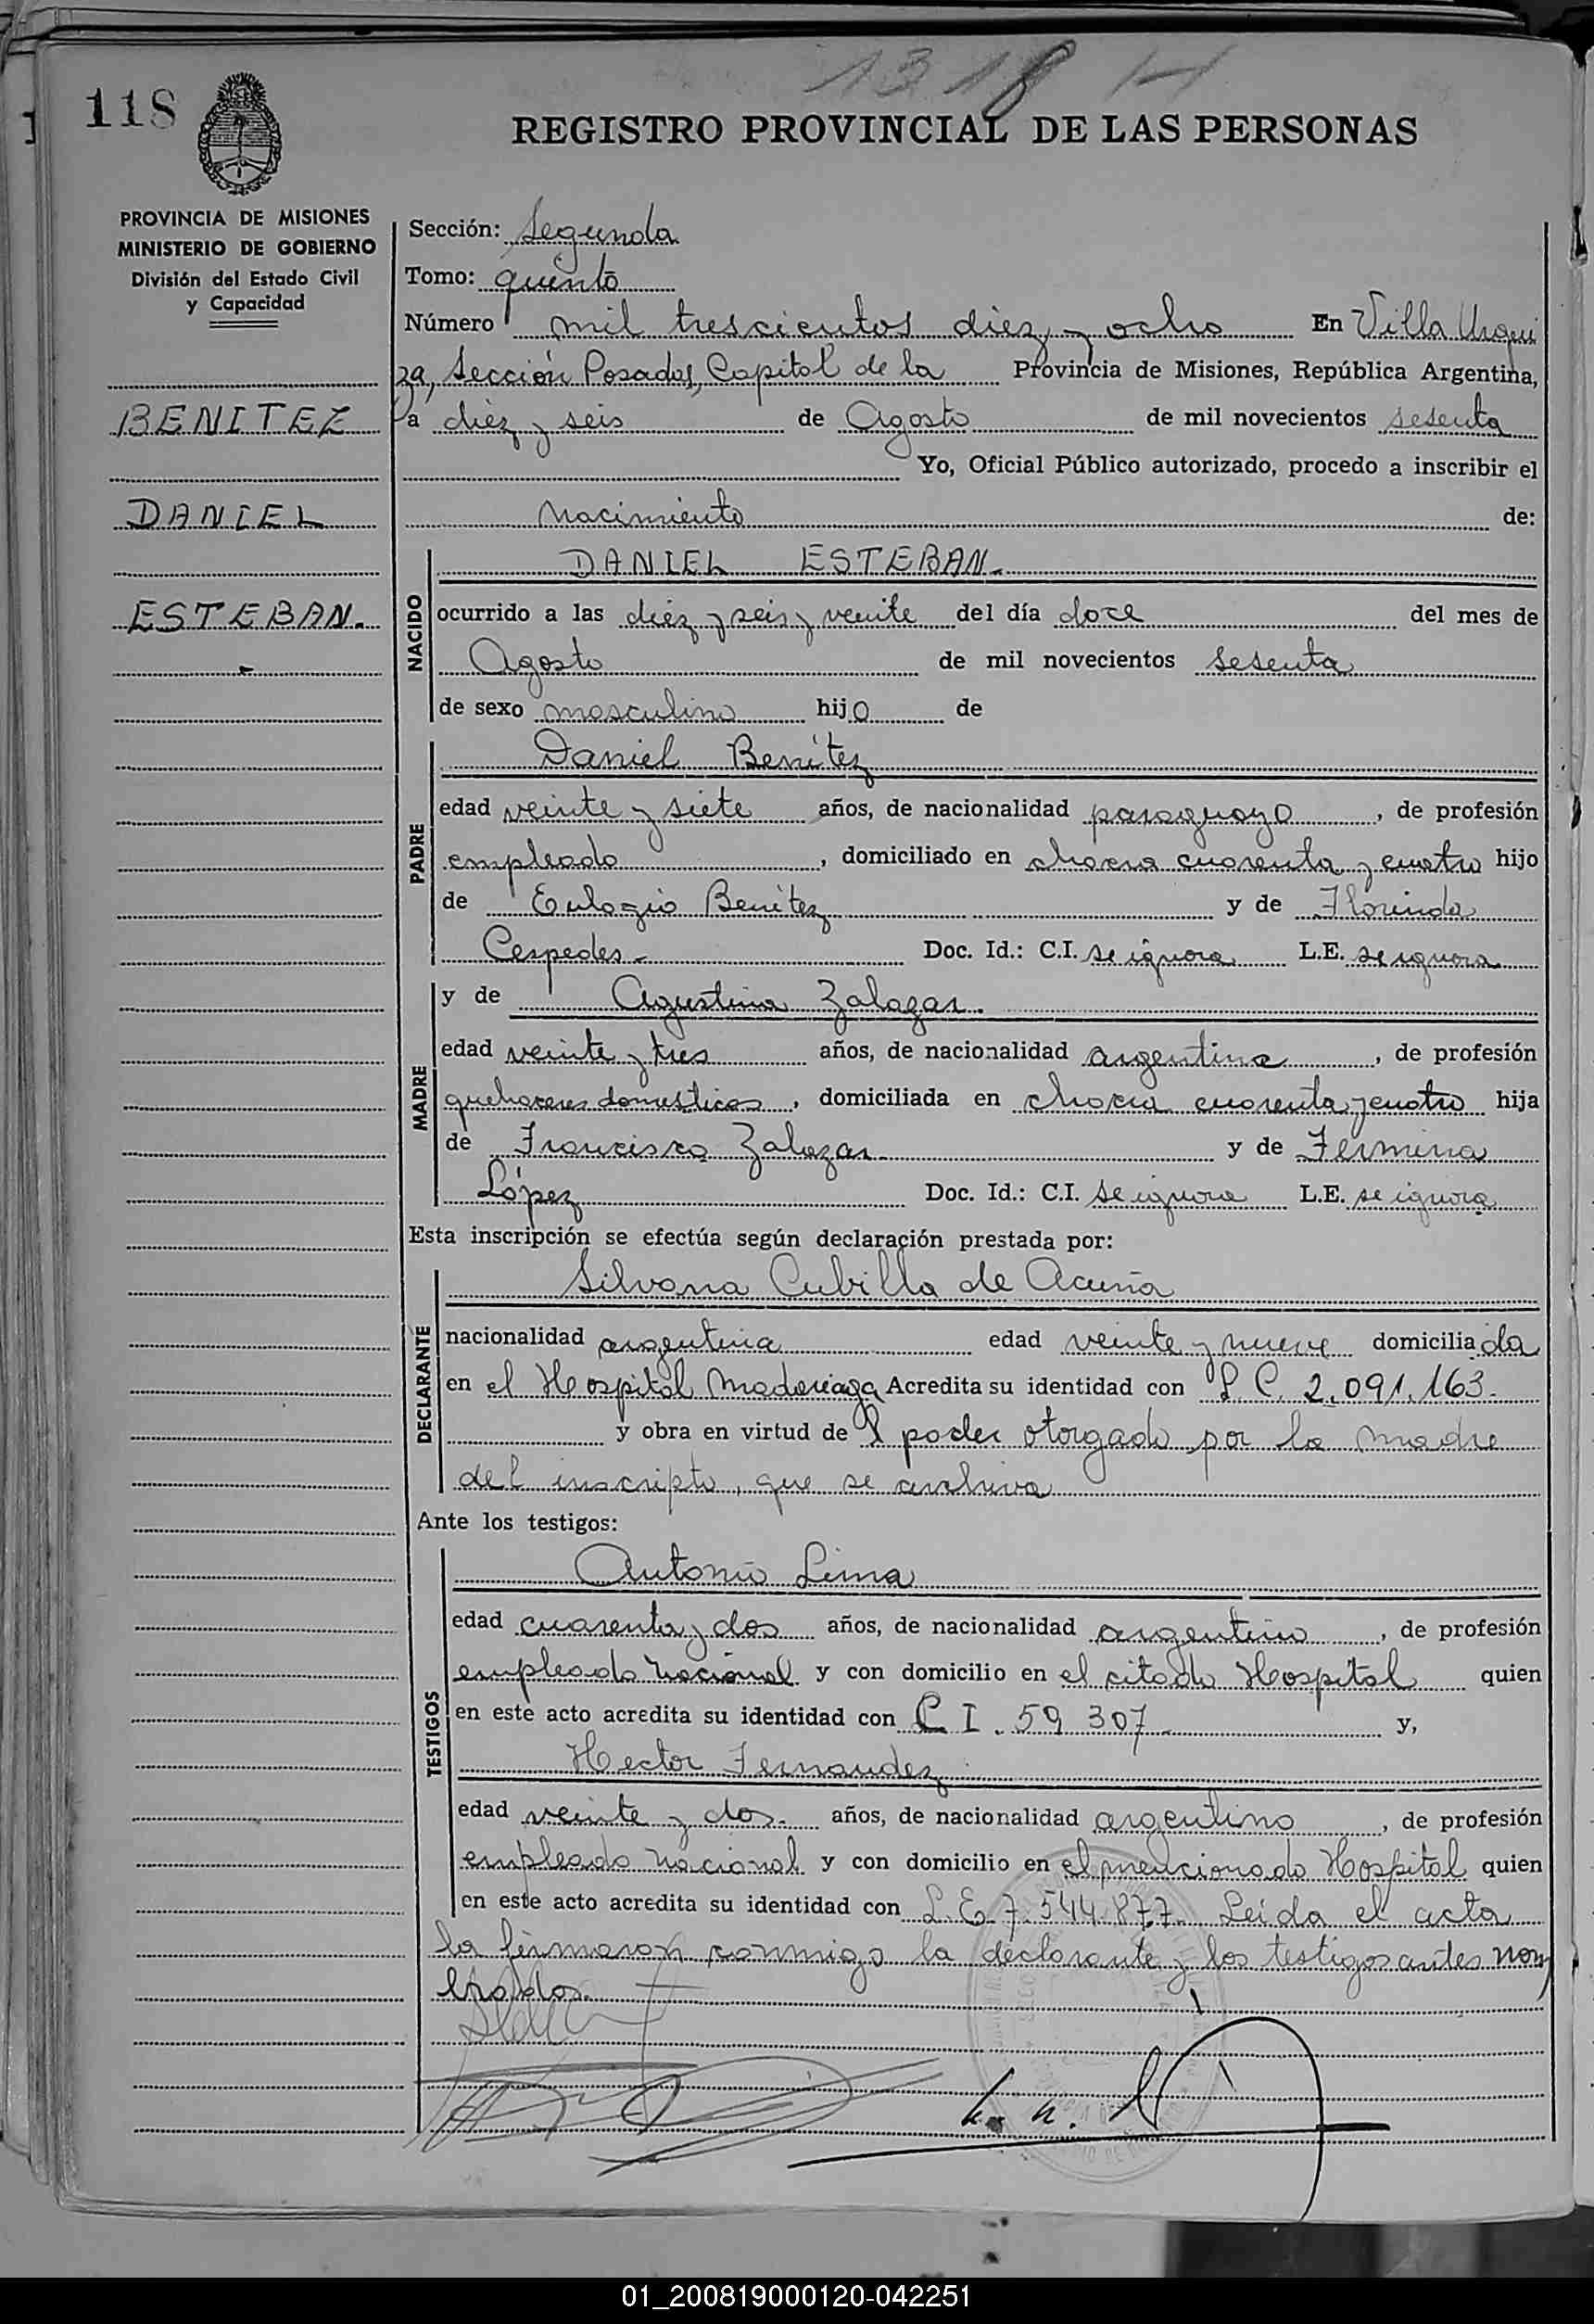 1318 H
118
REGISTRO PROVINCIAL DE LAS PERSONAS
PROVINCIA DE MISIONES
MINISTERIO DE GOBIERNO
División del Estado Civil
y Capacidad
BENITEZ
DANIEL
ESTEBAN.
Sección: Segunda
Tomo: quinto
Número mil trescientos diez y ocho En Villa Urqui
za, Sección Posadas, Capital de la Provincia de Misiones, República Argentina,
a diez y seis de Agosto de mil novecientos sesenta
Yo, Oficial Público autorizado, procedo a inscribir el
Nacimiento de:
NACIDO
DANIEL ESTEBAN.
ocurrido a las diez y seis y veinte del día doce del mes de
Agosto de mil novecientos sesenta
de sexo masculino hijo de
PADRE
Daniel Benítez
edad veinte y siete años, de nacionalidad paraguayo, de profesión
empleado, domiciliado en chacra cuarenta y cuatro hijo
de Eulogio Benítez y de Florinda
Cespedes. Doc. Id.: C.I. se ignora L.E. se ignora
MADRE
y de Agustina Zalazar.
edad veinte y tres años, de nacionalidad argentina, de profesión
quehaceres domesticos, domiciliada en chacra cuarenta y cuatro hija
de Francisco Zalazar y de Fermina
López Doc. Id.: C.I. se ignora L.E. se ignora
Esta inscripción se efectúa según declaración prestada por:
DECLARANTE
Silvana Cubilla de Acuña
nacionalidad argentina edad veinte y nueve domiciliada
en el Hospital Madariaga Acredita su identidad con L.C. 2.091.163.
y obra en virtud del poder otorgado por la madre
del inscripto, que se archiva
Ante los testigos:
TESTIGOS
Antonio Lima
edad cuarenta y dos años, de nacionalidad argentino, de profesión
empleado nacional y con domicilio en el citado Hospital quien
en este acto acredita su identidad con C I. 59 307 y,
Hector Fernandez
edad veinte y dos. años, de nacionalidad argentino, de profesión
empleado nacional y con domicilio en el mencionado Hospital quien
en este acto acredita su identidad con L.E. 7.544.877. Leída el acta
la firmaron conmigo la declarante y los testigos antes nom
brados.
01_200819000120-042251